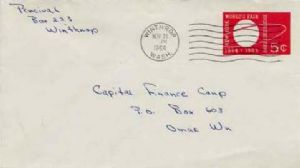 Percival
Box 273
Winthrop
WINTHROP
NOV 21
PM
1964
WASH.
NEW YORK WORLD'S FAIR
1964-1965
5¢
Capital Finance Corp
P.O. Box 608
Omak Wn